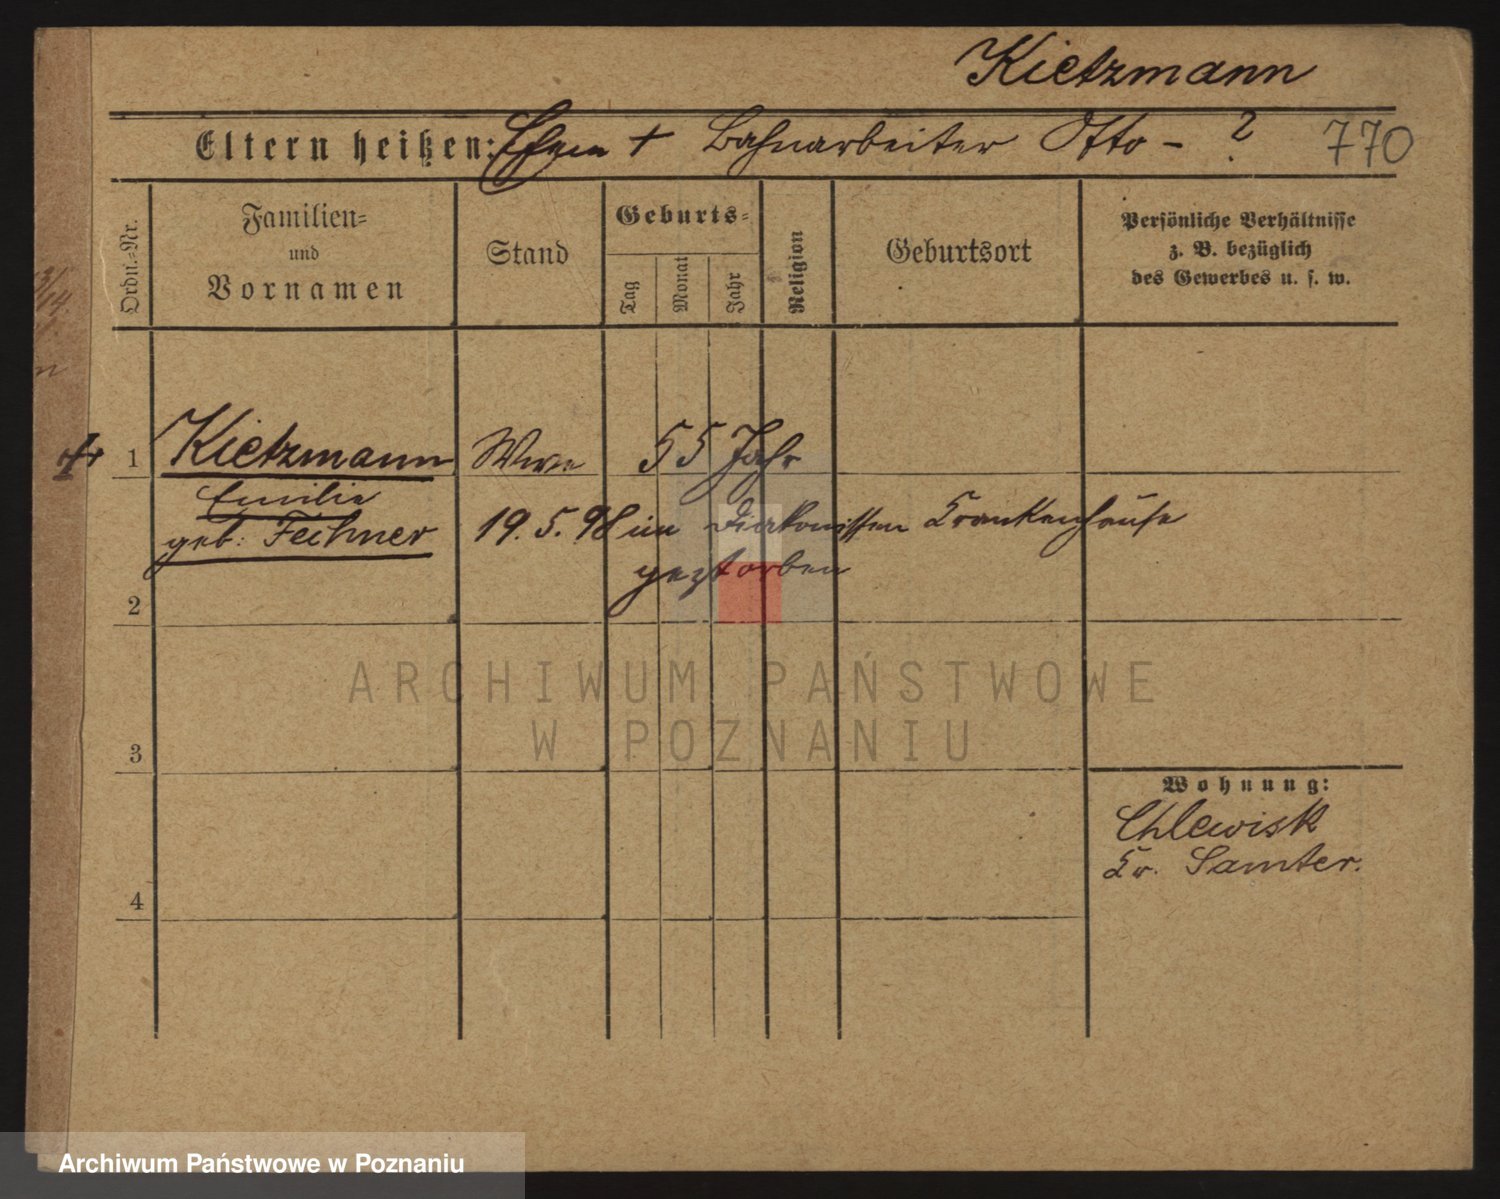 Kietzmann
Eltern heißen: Ehem + Bahnarbeiter Otto - ? 770
Ordn.-Nr.
Familien-
und
Vornamen
Stand
Geburts-
Tag
Monat
Jahr
Religion
Geburtsort
Persönliche Verhältnisse
z. B. bezüglich
des Gewerbes u. s. w.
+ 1 Kietzmann Wwe 55 Jahr
Emilie
geb: Fechner 19. 5. 98 im Diakonissen Krankenhause
gestorben
2
3
Wohnung:
Chlewisk
Kr. Samter.
4
ARCHIWUM PAŃSTWOWE
W POZNANIU
Archiwum Państwowe w Poznaniu